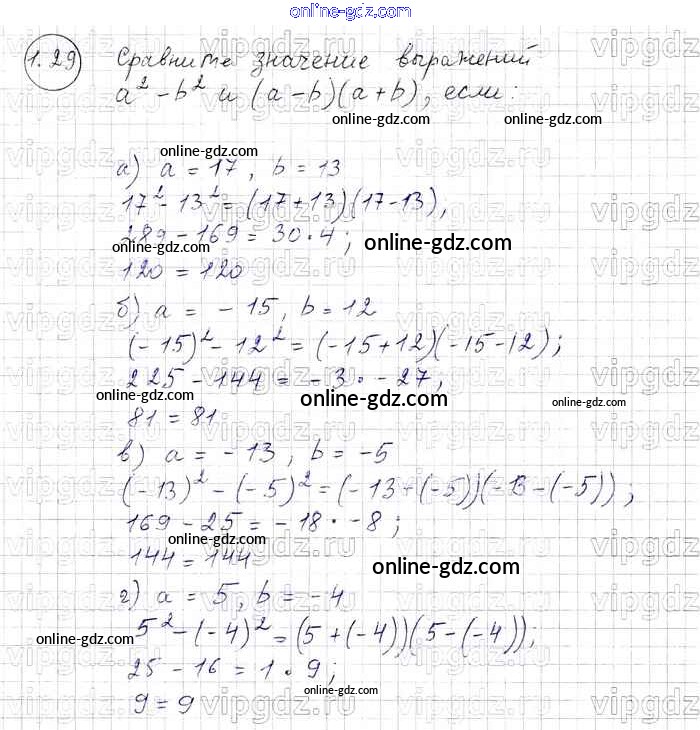 online-gdz.com
1.29 Сравните значение выражений
a² - b² и (a - b)(a + b), если:
online-gdz.com online-gdz.com
а) a = 17, b = 13
17² - 13² = (17+13)(17-13),
289 - 169 = 30 · 4;
online-gdz.com online-gdz.com
120 = 120
б) a = -15, b = 12
(-15)² - 12² = (-15+12)(-15-12);
225 - 144 = -3 · -27,
online-gdz.com online-gdz.com online-gdz.com
81 = 81
в) a = -13, b = -5
(-13)² - (-5)² = (-13+(-5))(-13-(-5));
169 - 25 = -18 · -8;
online-gdz.com
144 = 144
online-gdz.com
г) a = 5, b = -4
5² - (-4)² = (5+(-4))(5-(-4));
online-gdz.com
25 - 16 = 1 · 9;
online-gdz.com
9 = 9